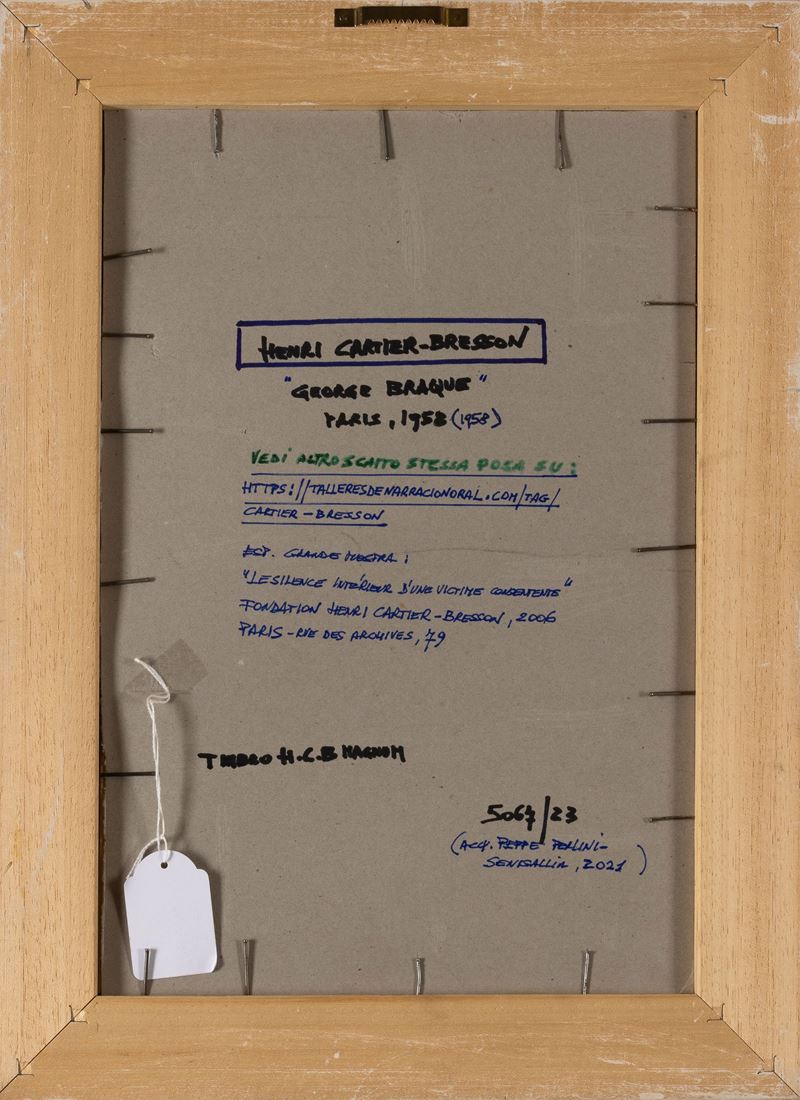 HENRI CARTIER-BRESSON
"GEORGE BRAQUE"
PARIS, 1958 (1958)
VEDI ALTRO SCATTO STESSA POSA SU:
HTTPS://TALLERESDENARRACIONORAL.COM/TAG/
CARTIER-BRESSON
ESP. GRANDE MOSTRA:
"LE SILENCE INTÉRIEUR D'UNE VICTIME CONSENTENTE"
FONDATION HENRI CARTIER-BRESSON, 2006
PARIS - RUE DES ARCHIVES, 79
TIMBRO H.C.B MAGNUM
5067/23
(ACQ. PEPPE
SENIGALLIA, 2021)